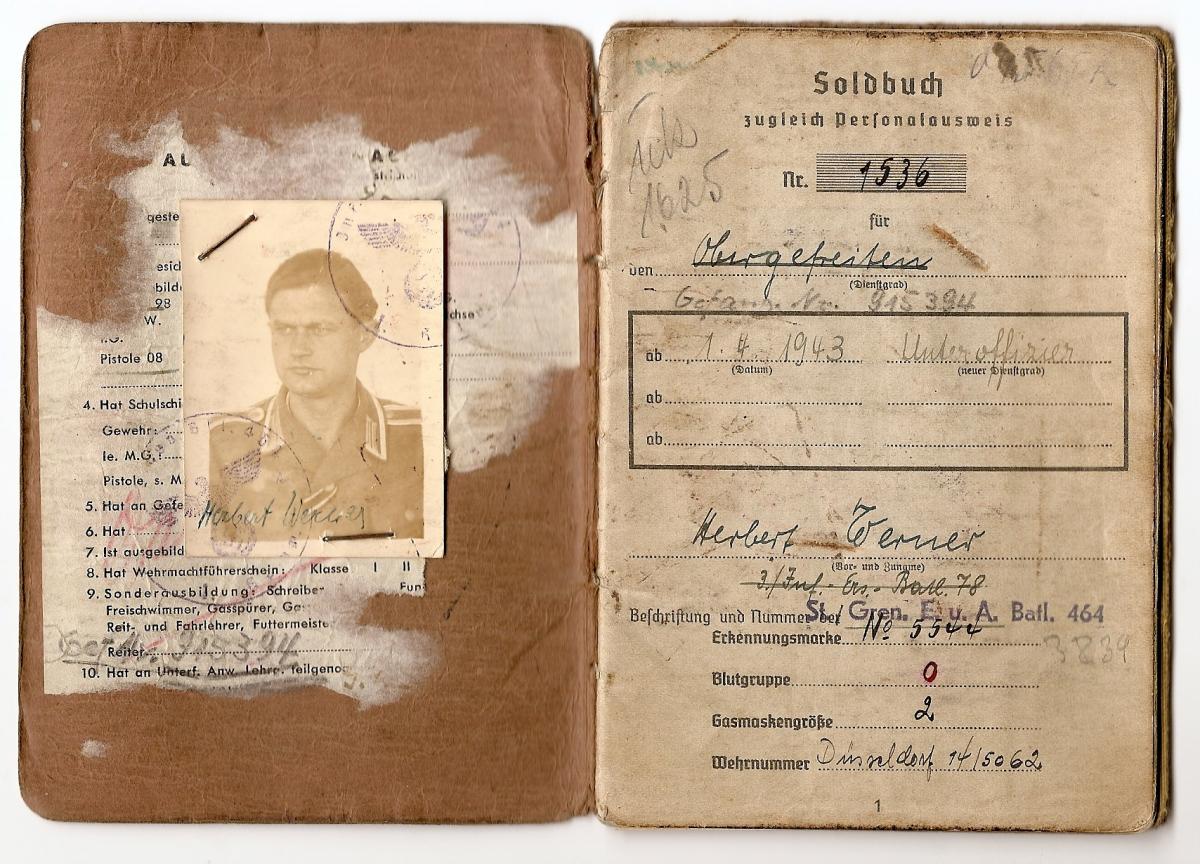 AU
geste
esid
bild
28
W.
Pistole 08
chse
4. Hat Schulschi
Gewehr:
le. M.G.:
Pistole, s. M
5. Hat an Gefe
6. Hat
7. Ist ausgebild
8. Hat Wehrmachtführerschein: Klasse I II
9. Sonderausbildung: Schreiber Fun
Freischwimmer, Gasspürer, Gas
Reit- und Fahrlehrer, Futtermeiste
Reiter
Gef. Nr. 915394
10. Hat an Unterf. Anw. Lehrg. teilgeno
Herbert Werner
Soldbuch
zugleich Personalausweis
Nr. 1536
1625
für
den Obergefreiten
(Dienstgrad)
Gefang. Nr. 915394
ab 1.4.1943 Unteroffizier
(Datum) (neuer Dienstgrad)
ab
ab
Herbert Werner
(Vor- und Zuname)
3./Inf.-Ers.-Batl. 78
St./Gren. E. u. A. Batl. 464
Beschriftung und Nummer der
Erkennungsmarke No 5544
3839
Blutgruppe 0
Gasmaskengröße 2
Wehrnummer Düsseldorf 14/5062
1